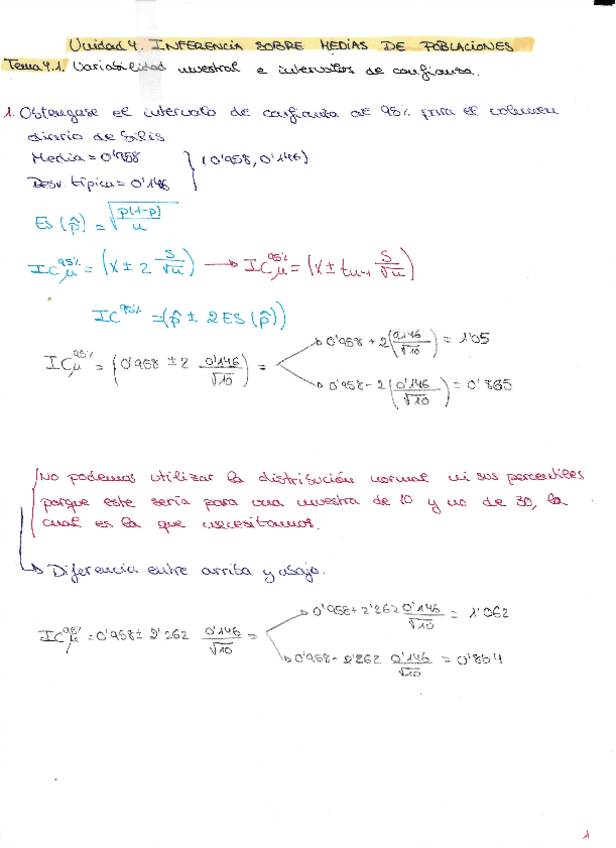 Unidad 4. INFERENCIA SOBRE MEDIAS DE POBLACIONES
Tema 4.1. Variabilidad muestral e intervalos de confianza.
1. Obtengase el intervalo de confianza al 95% para el volumen
diario de bilis
Media = 0'958
Desv. típica = 0'146
(0'958, 0'146)
ES (p̂) = √(p(1-p)/n)
IC_μ^95% = (x ± 2 s/√n) → IC_μ^95% = (x ± t_n-1 s/√n)
IC^95% = (p̂ ± 2ES(p̂))
IC_μ^95% = (0'958 ± 2 0'146/√10) =
0'958 + 2(0'146/√10) = 1'05
0'958 - 2(0'146/√10) = 0'865
No podemos utilizar la distribución normal ni sus percentiles
porque este sería para una muestra de 10 y no de 30, la
cual es la que necesitamos.
↳ Diferencia entre arriba y abajo.
IC_μ^95% = 0'958 ± 2'262 0'146/√10 =
0'958 + 2'262 0'146/√10 = 1'062
0'958 - 2'262 0'146/√10 = 0'854
1